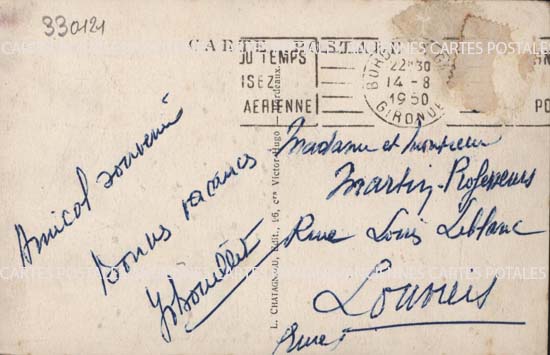 330121
CARTE POSTALE
DU TEMPS
ISEZ
AERIENNE
BORD
22H30
14-8
1950
GIRONDE
PO
Amical souvenir
Bonnes vacances
L. CHATAGNEAU, Edit., 16, crs Victor-Hugo - Bordeaux.
Madame et Monsieur
Martin-Professeurs
Rue Louis Leblanc
Louviers
Eure
ANCIENNES CARTES POSTALES